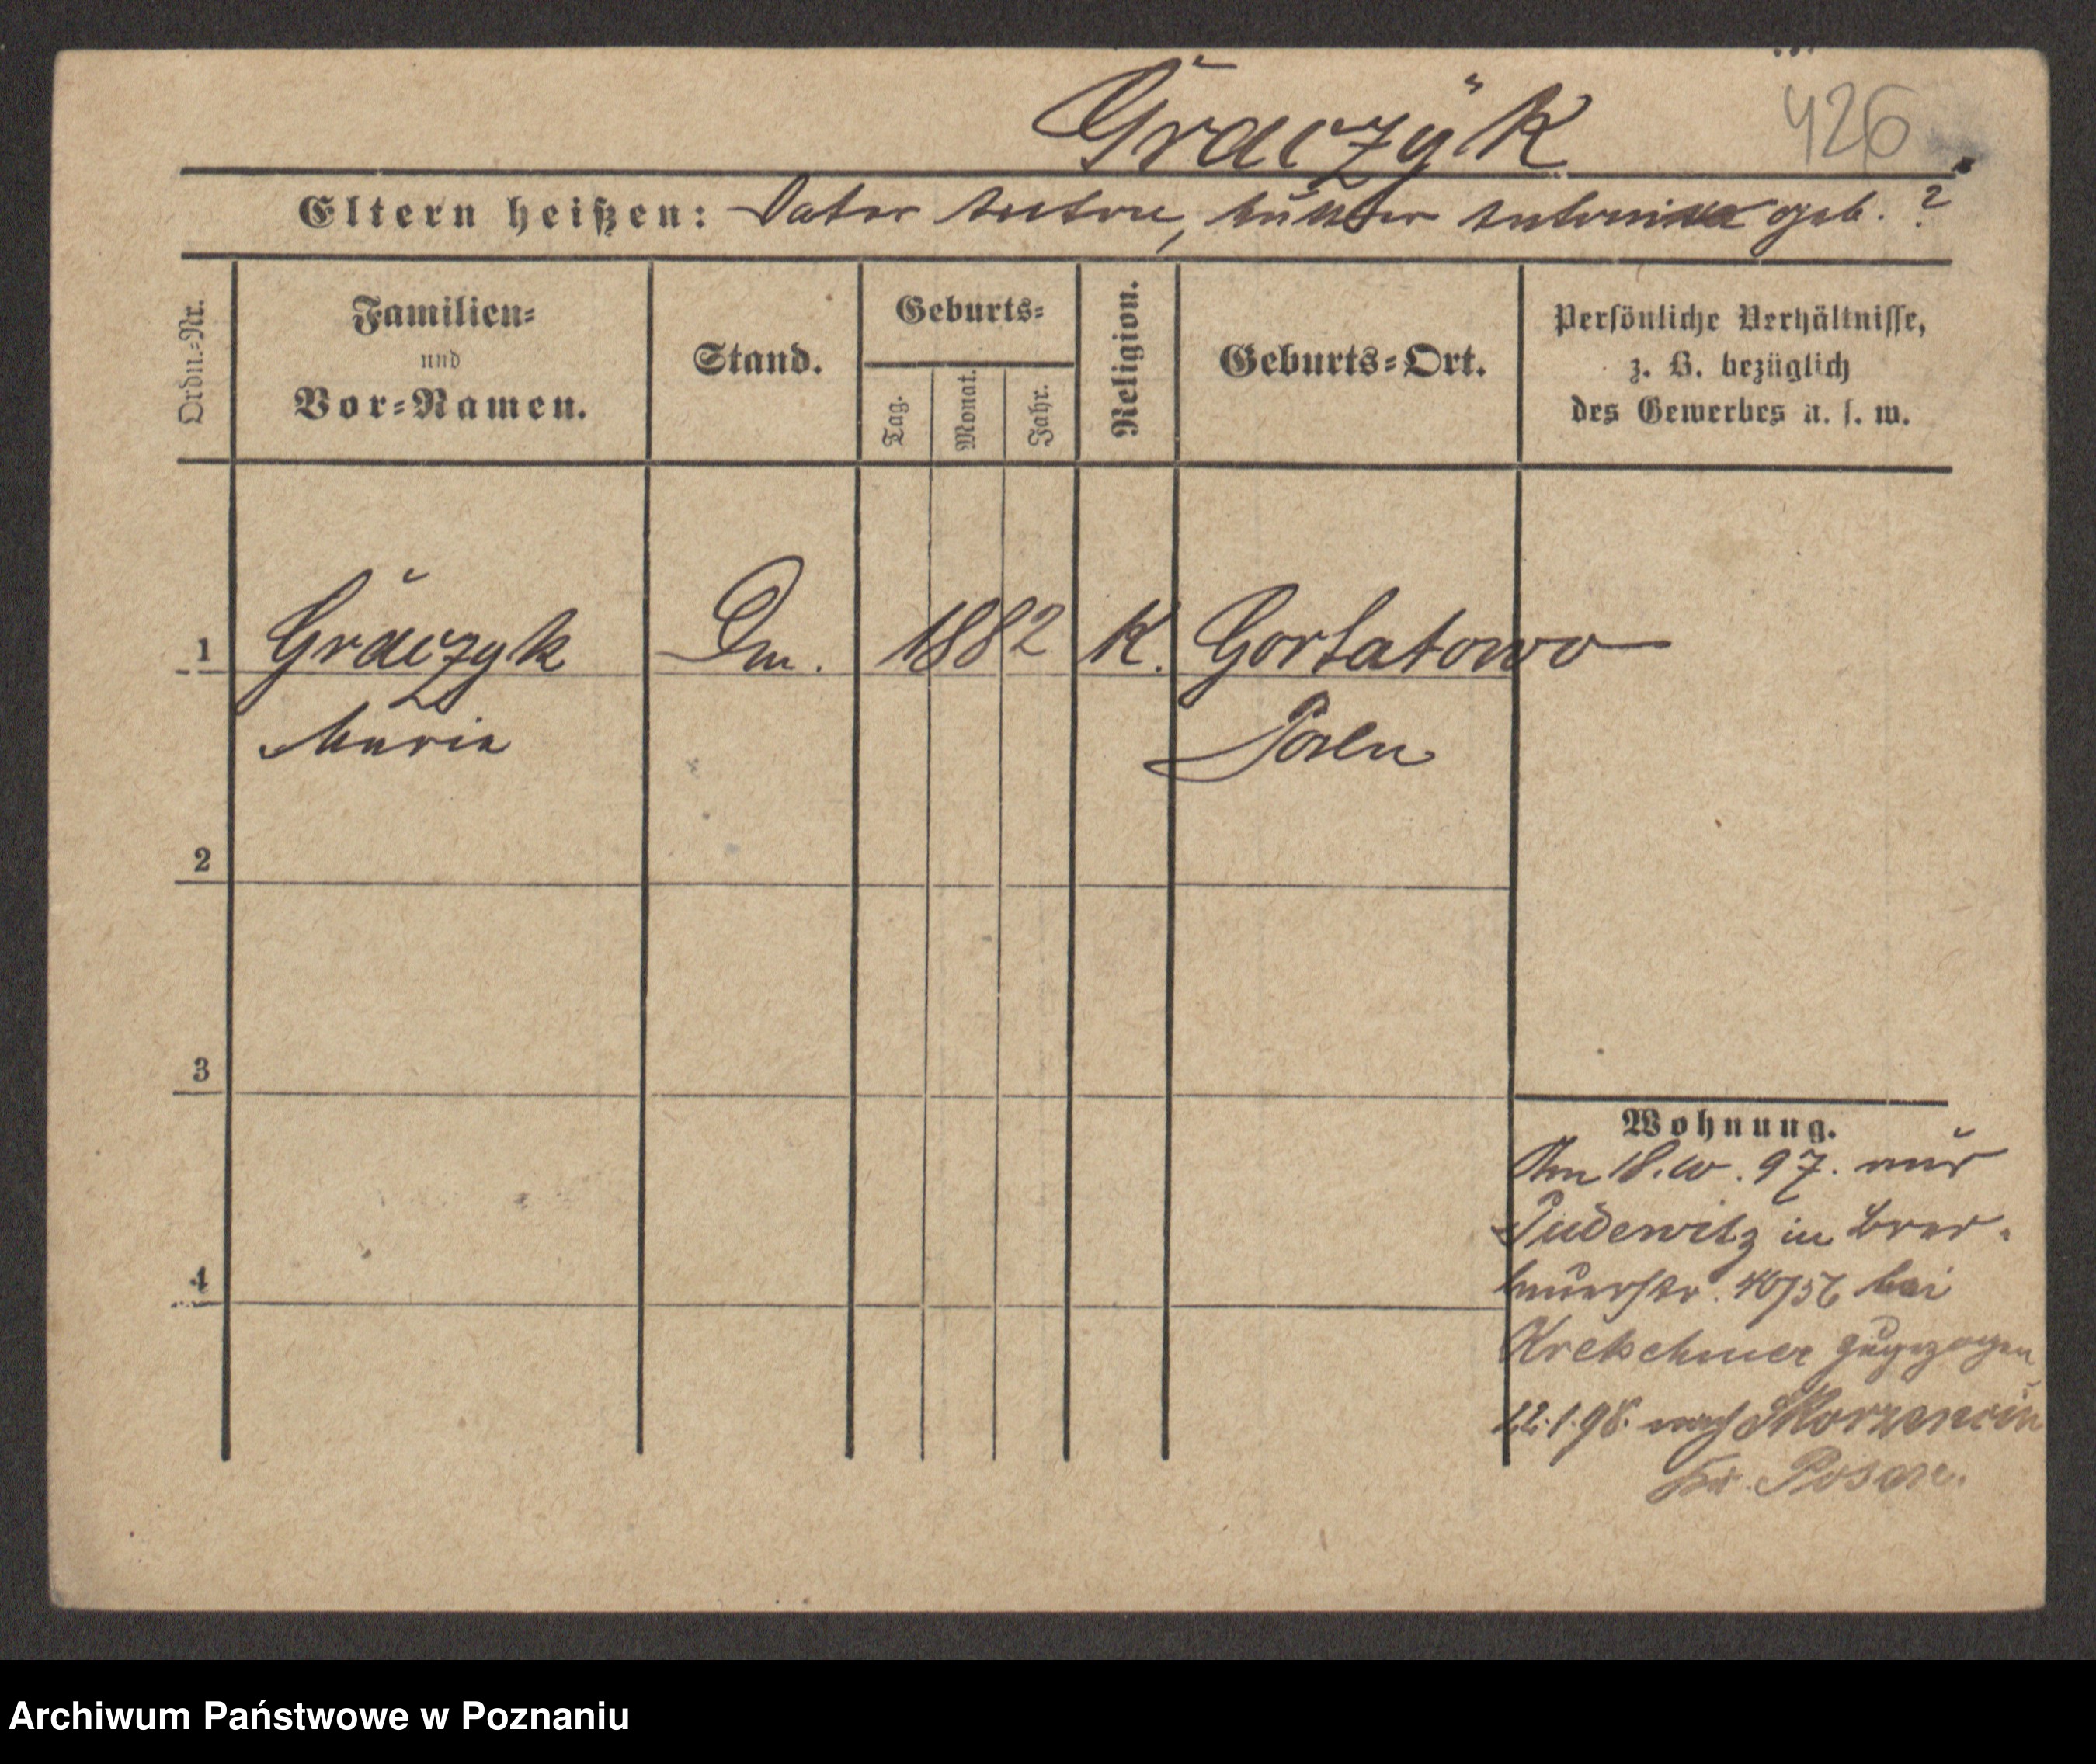 Graczyk
426
Eltern heißen: Vater Anton, Mutter Antonina geb. ?
Ordn.-Nr.
Familien-
und
Vor-Namen.
Stand.
Geburts-
Tag.
Monat.
Jahr.
Religion.
Geburts-Ort.
Persönliche Verhältnisse,
z. B. bezüglich
des Gewerbes u. s. w.
1 Graczyk Dm. 1882 K. Gortatowo
Maria Posen
2
3
4
Wohnung.
Am 18. 10. 97. aus
Pudewitz in
bei
Kretschmer zugezogen
12.1.98. nach
Kr. Posen.
Archiwum Państwowe w Poznaniu